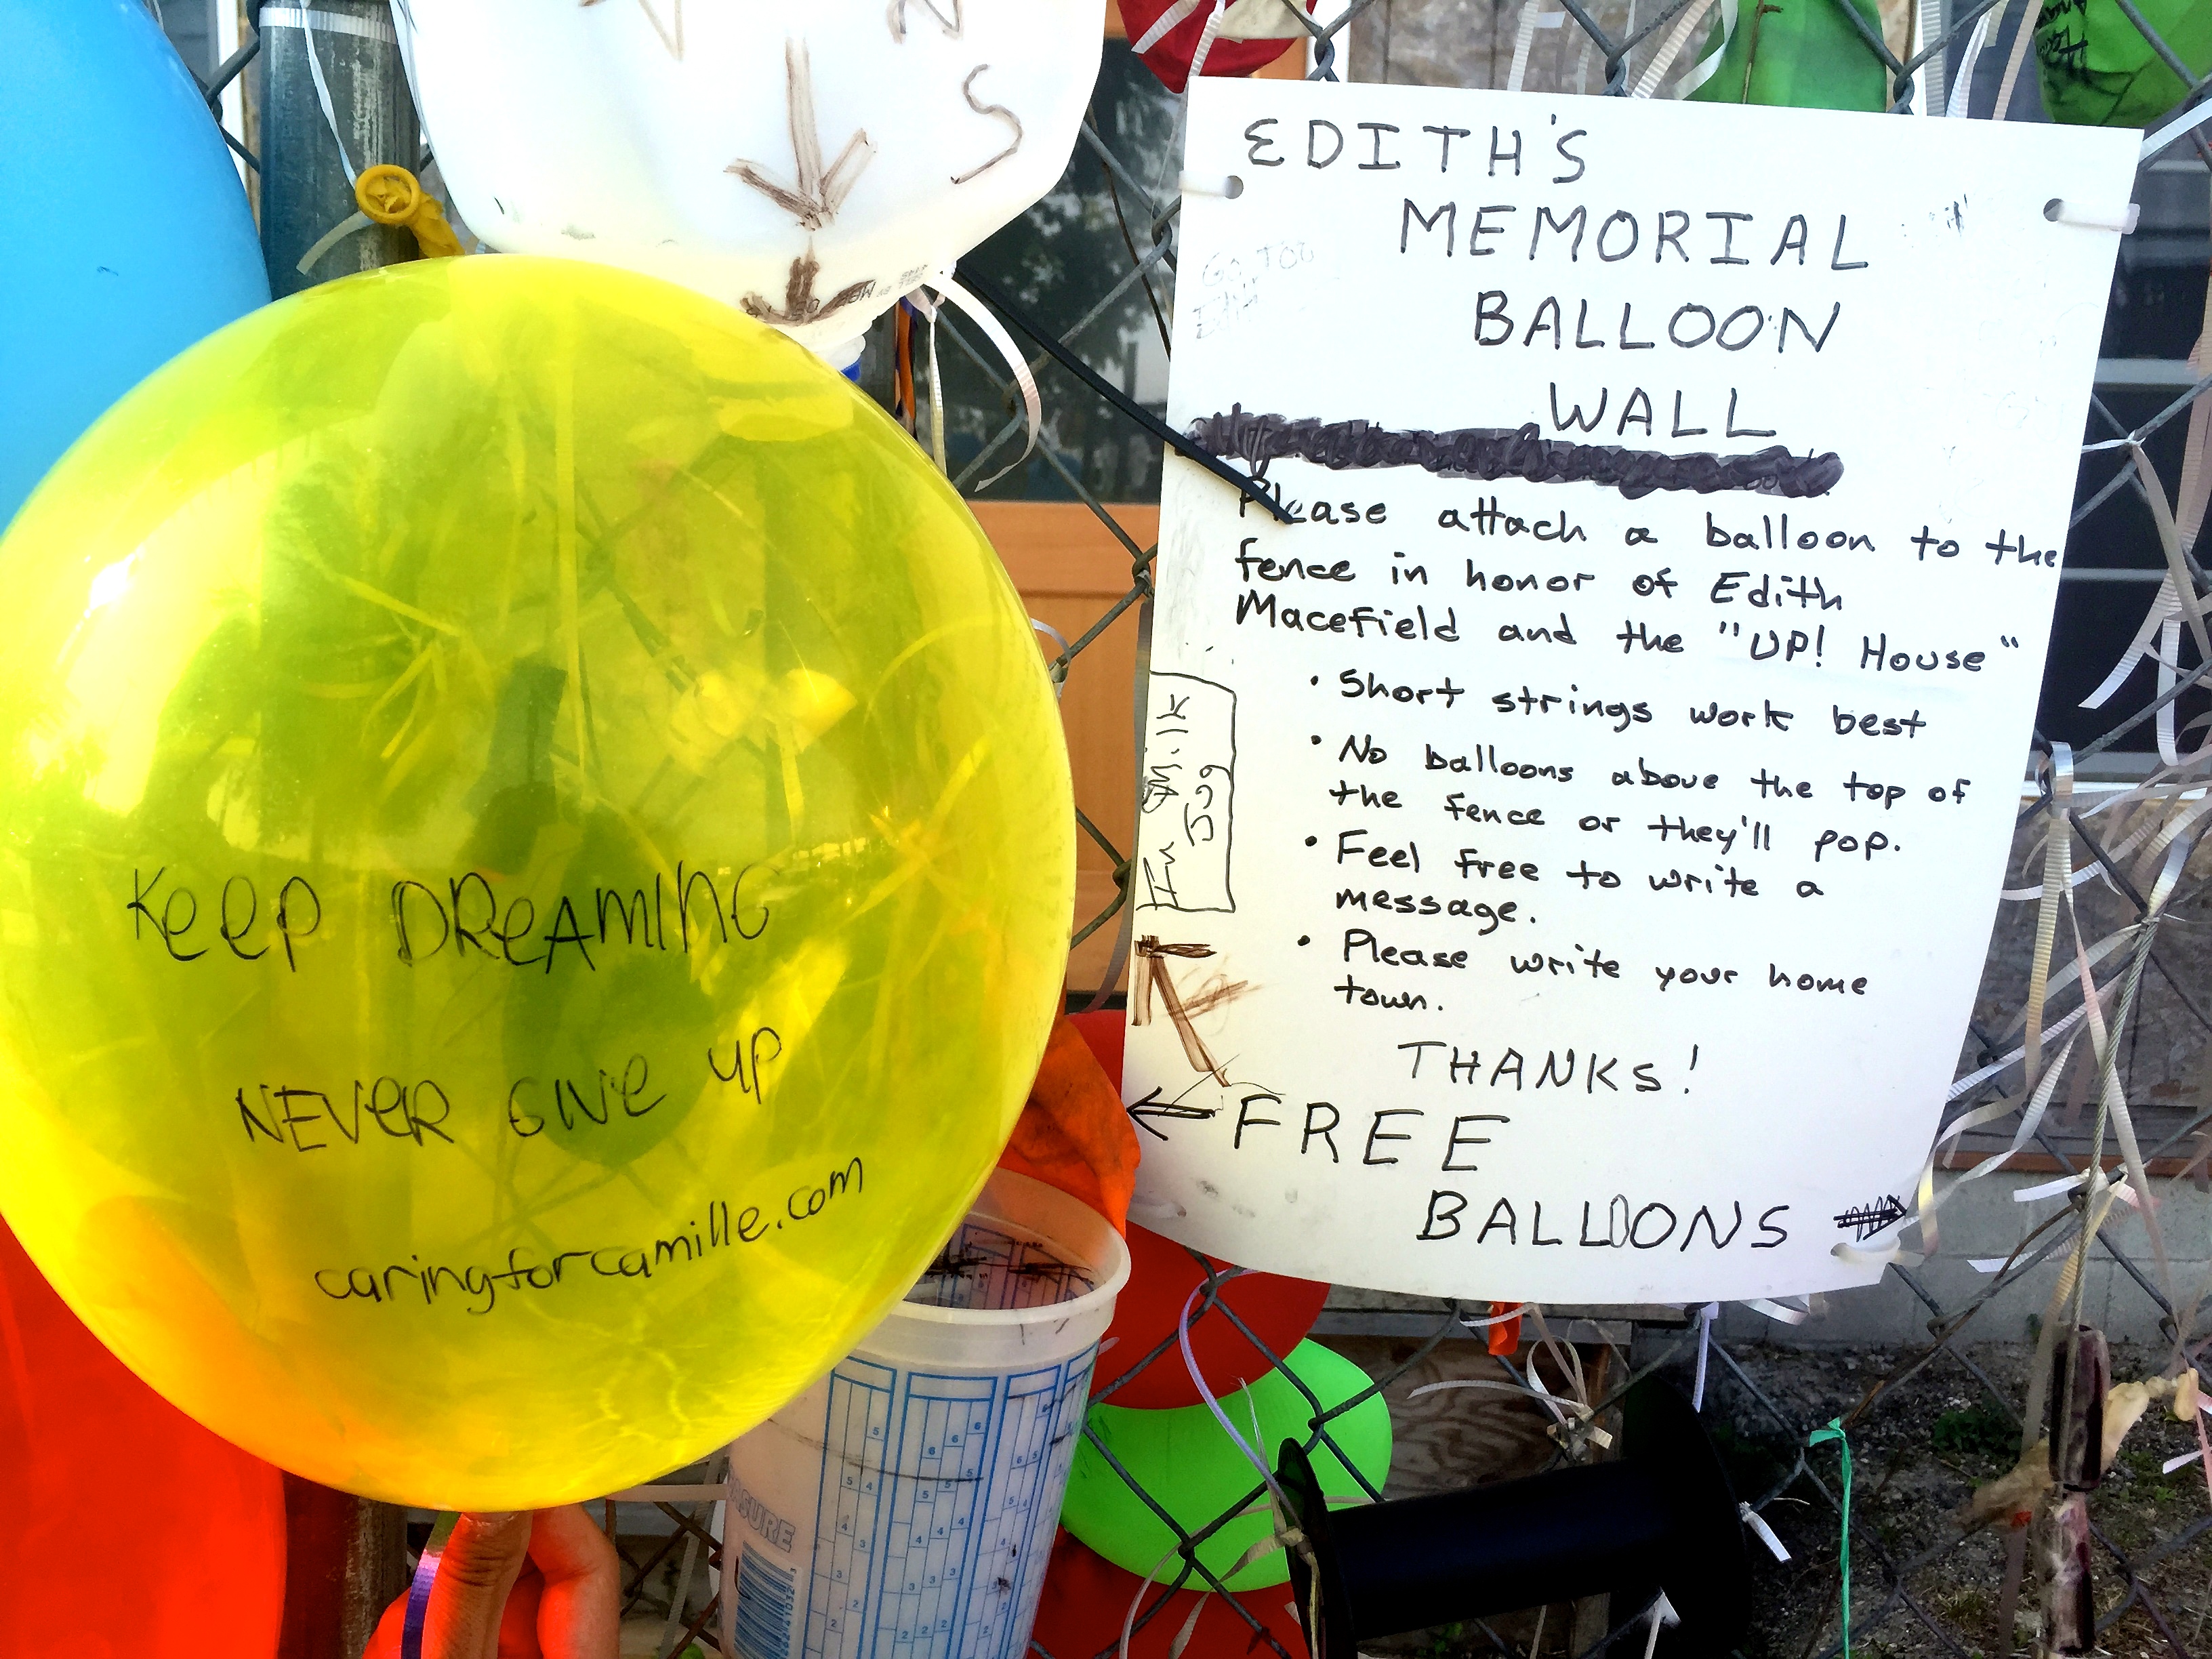 N S
EDITH'S
MEMORIAL
BALLOON
WALL
Please attach a balloon to the
fence in honor of Edith
Macefield and the "UP! House"
• Short strings work best
• No balloons above the top of
the fence or they'll pop.
• Feel free to write a
message.
• Please write your home
town.
THANKS!
← FREE
BALLOONS →
In Milk
Jug
KEEP DREAMING
NEVER GIVE UP
caringforcamille.com